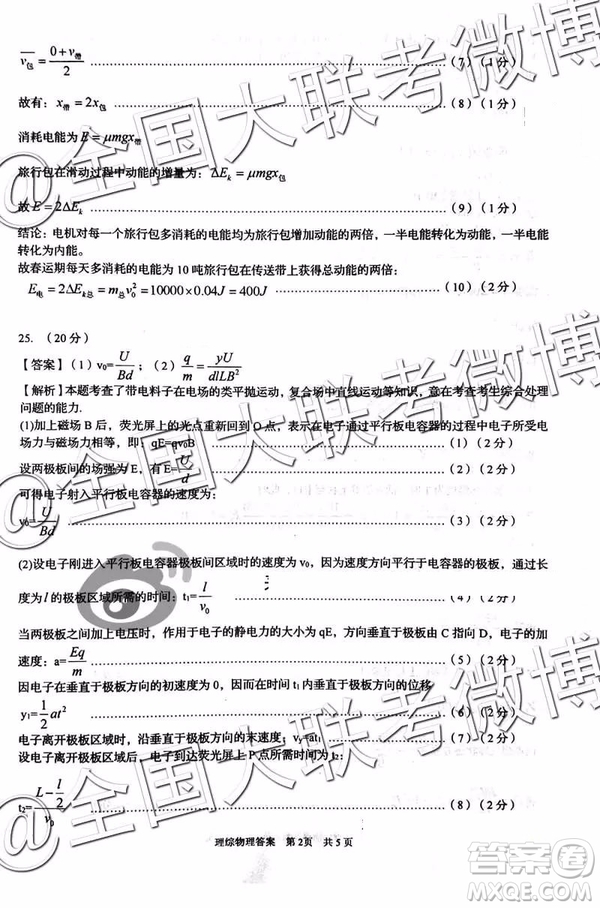 v包 = (0+v带)/2 ……(7)(1分)
故有：x带=2x包 ……(8)(1分)
消耗电能为 E=μmgx带
旅行包在滑动过程中动能的增量为：ΔEk=μmgx包
故 E=2ΔEk ……(9)(1分)
结论：电机对每一个旅行包多消耗的电能均为旅行包增加动能的两倍，一半电能转化为动能，一半电能
转化为内能。
故春运期每天多消耗的电能为 10 吨旅行包在传送带上获得总动能的两倍：
E电=2ΔEk总=m总v0²=10000×0.04J=400J ……(10)(2分)
25.（20分）
【答案】(1)v0=U/Bd；(2) q/m=yU/dlLB²
【解析】本题考查了带电料子在电场的类平抛运动，复合场中直线运动等知识，意在考查考生综合处理
问题的能力.
(1)加上磁场 B 后，荧光屏上的光点重新回到 O 点，表示在电子通过平行板电容器的过程中电子所受电
场力与磁场力相等，即：qE=qv0B ……(1)(2分)
设两极板间的场强为 E，有 E=U/d ……(2)(2分)
可得电子射入平行板电容器的速度为：
v0=U/Bd ……(3)(2分)
(2)设电子刚进入平行板电容器极板间区域时的速度为 v0，因为速度方向平行于电容器的极板，通过长
度为 l 的极板区域所需的时间：t1=l/v0 ……(4)(2分)
当两极板之间加上电压时，作用于电子的静电力的大小为 qE，方向垂直于极板由 C 指向 D，电子的加
速度：a=Eq/m ……(5)(2分)
因电子在垂直于极板方向的初速度为 0，因而在时间 t1 内垂直于极板方向的位移
y1=1/2 at² ……(6)(2分)
电子离开极板区域时，沿垂直于极板方向的末速度：vy=at1 ……(7)(2分)
设电子离开极板区域后，电子到达荧光屏上 P 点所需时间为 t2：
t2=(L-l/2)/v0 ……(8)(2分)
理综物理答案 第2页 共5页
@全国大联考微博
@全国大联考微博
@全国大联考微博
答案圈
MXQE.COM